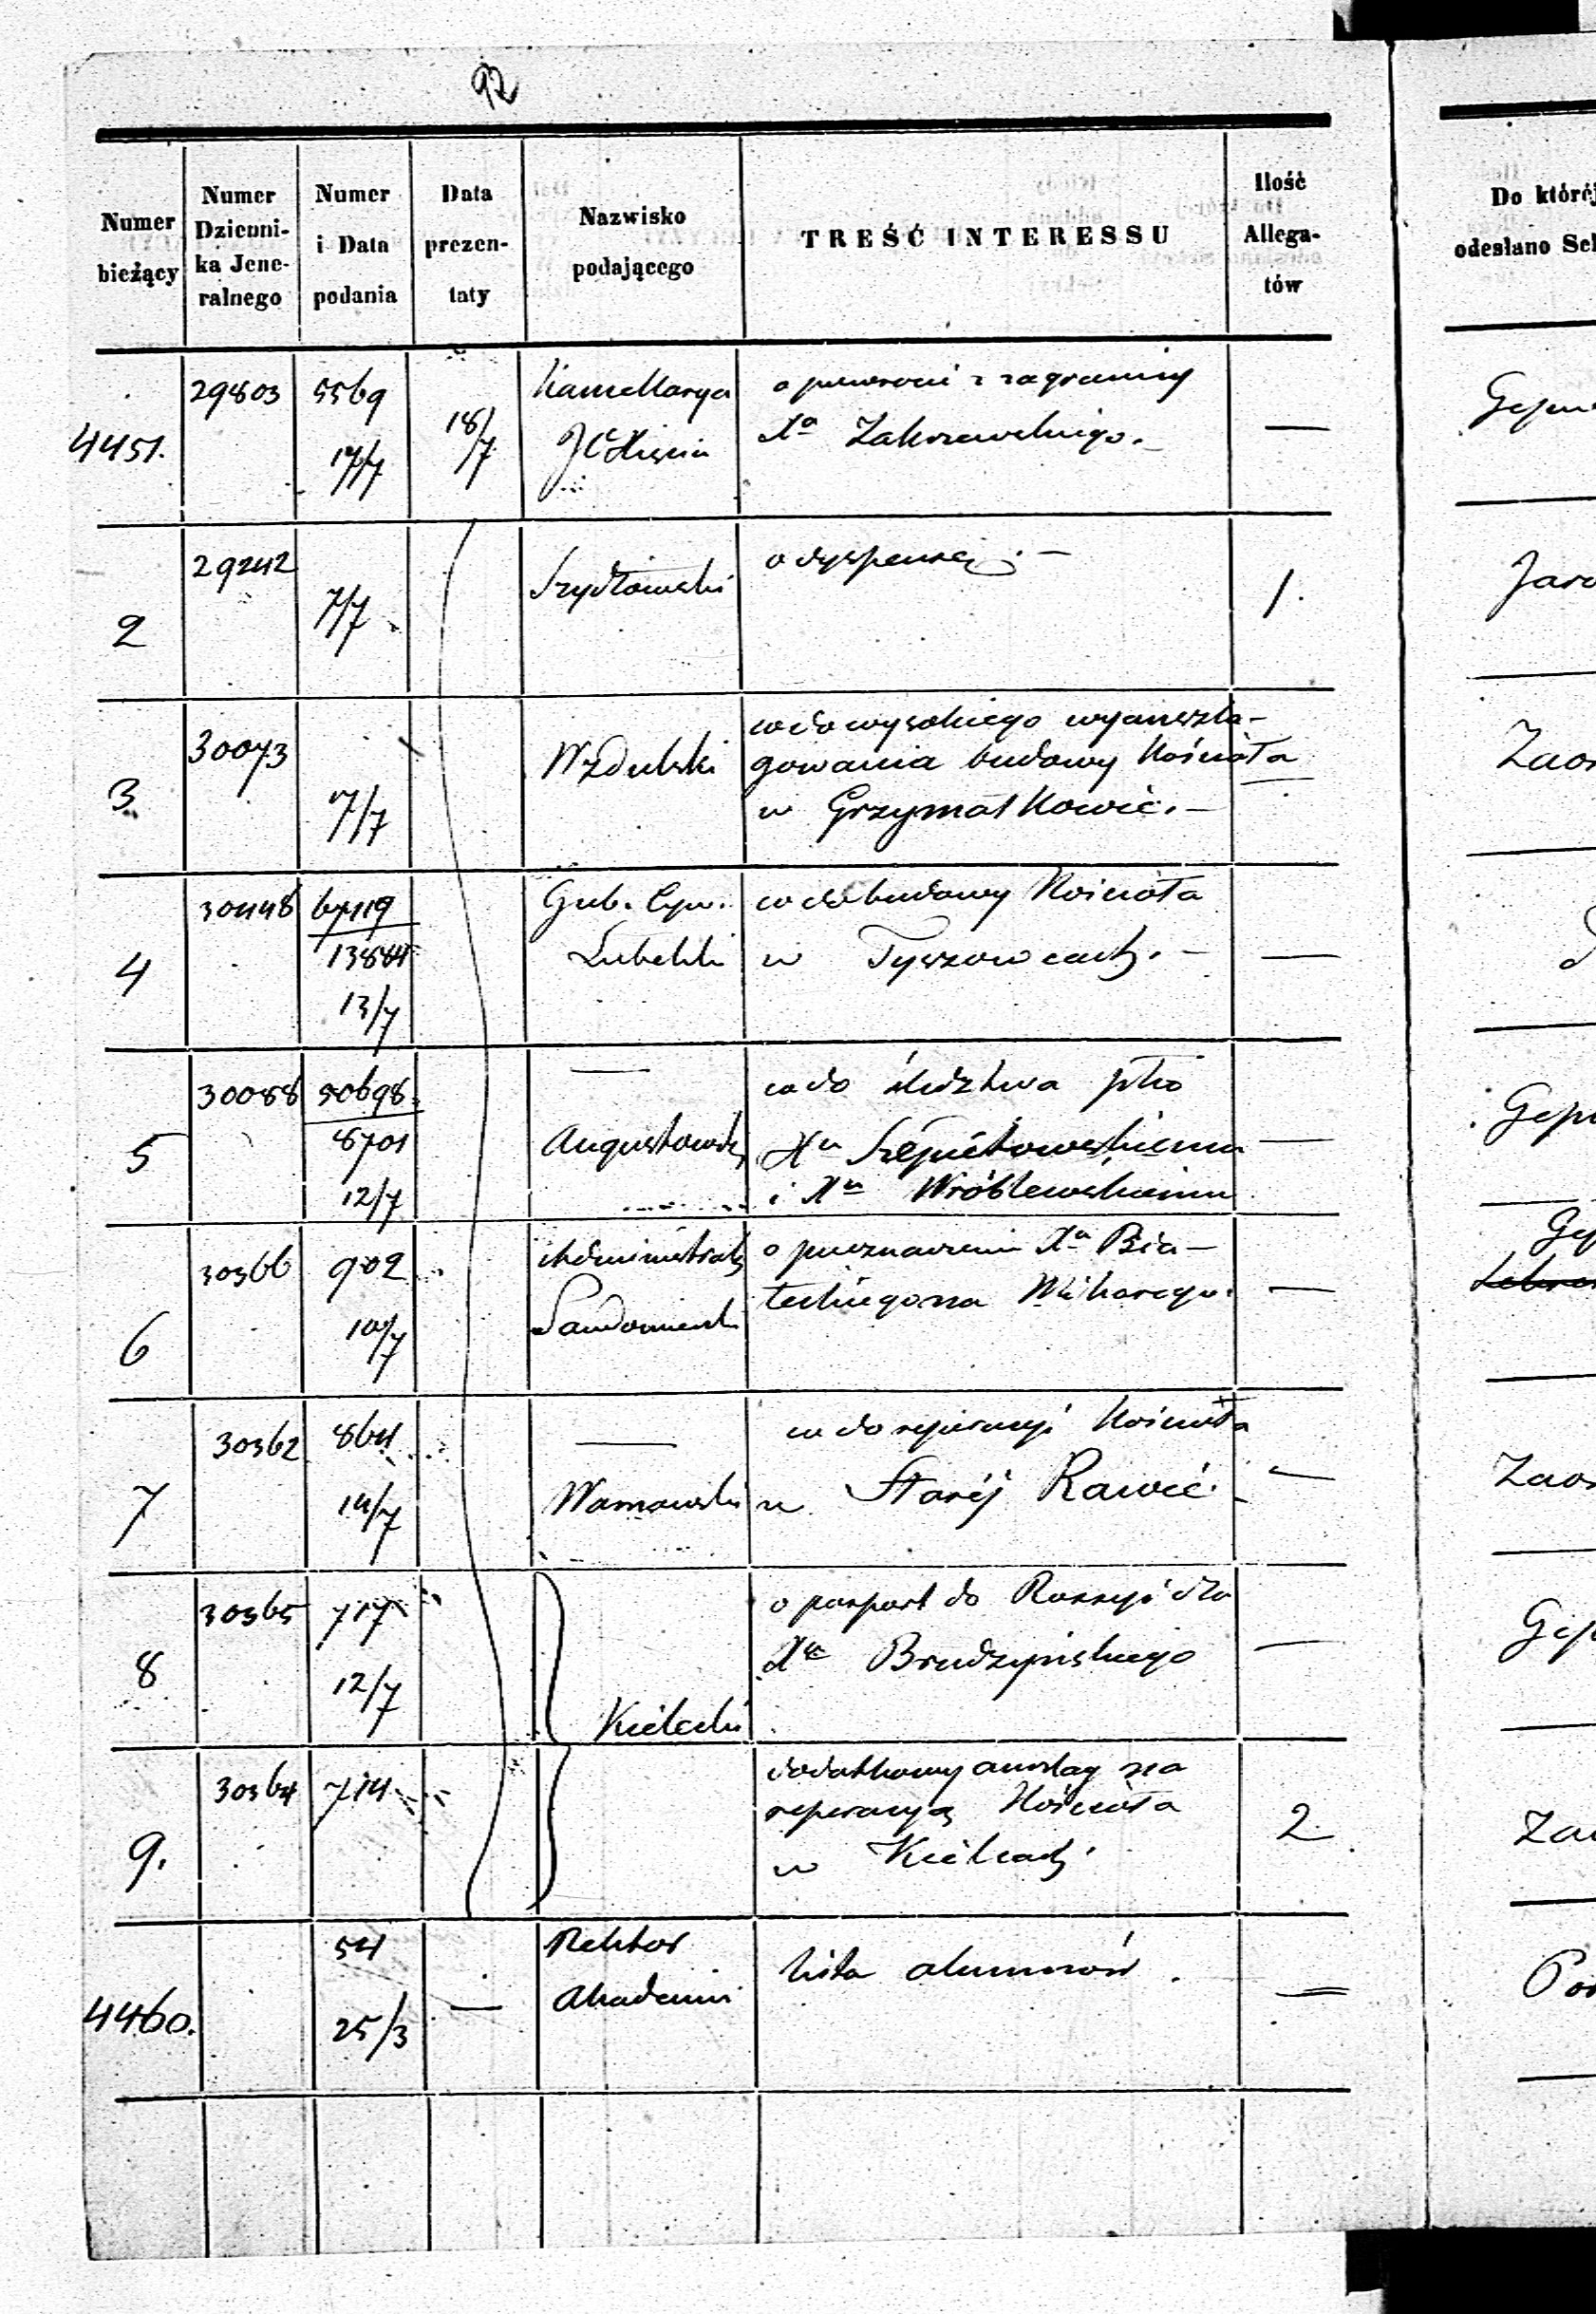 92
Numer bieżący
Numer Dzienni-ka Jene-ralnego
Numer i Data podania
Data prezen-taty
Nazwisko podającego
TREŚĆ INTERESSU
Ilość Allega-tów
Do którėj
odesłano
4451.
29803
5569
17/7
18/7
Kancellarya
JC Xięcia
o powrocie z zagranicy
Xa Zakrzewskiego.
—
2
29242
7/7
Szydłowski
o dyspensę. —
1.
3
30073
7/7
Wzdulski
co do wysokiego wyanszla-
gowania budowy Kościoła
w Grzymałkowic. —
4
30448
67119
13884
13/7
Gub. Cyw.
Lubelski
co do budowy Kościoła
w Tyszowcach. —
—
5
30088
50698
8701
12/7
—
Augustowski
co do śledztwa pko
Xu Szepietowskiemu
i Xu Wróblewskiemu
—
6
30366
902
10/7
Administrator
Sandomierski
o przeznaczeniu Xa Bia-
łeckiego na Wikarego.
—
7
30362
864
14/7
—
Warszawski
co do reperacyi Kościoła
w Starėj Rawie.
—
8
30365
717
12/7
Kielecki
o paszport do Rossyi dla
Xa Brudzyńskiego
—
9.
30364
714
dodatkowy anszlag na
reperacyą Kościoła
w Kielcach.
2
4460.
54
25/3
—
Rektor
Akademii
lista alumnów.